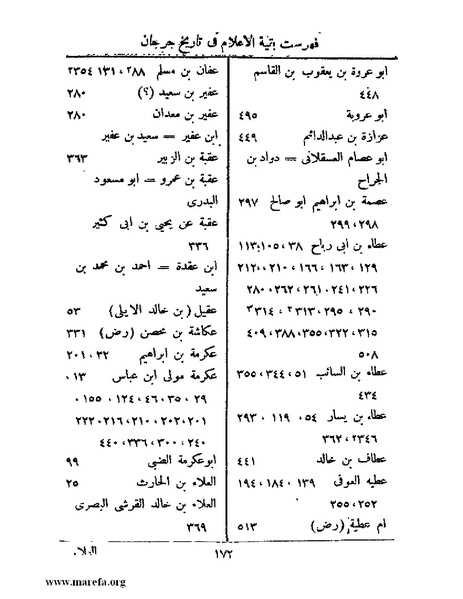 فهرست بقية الاعلام فى تاريخ جرجان
ابو عروة بن يعقوب بن القاسم
٤٤٨
ابو عروبة ٤٩٥
عزازة بن عبدالدائم ٤٤٩
ابو عصام العسقلانى = دواد بن
الجراح
عصمة بن ابراهيم ابو صالح ٢٩٧
٢٩٨، ٢٩٩
عطاء بن أبى رباح ٣٨، ١٠٥، ١١٣
١٢٩، ١٦٣، ١٦٦، ٢١٠، ٢١٢
٢٢٦، ٢٤١، ٢٦١، ٢٦٢، ٢٨٠
٢٩٠، ٢٩٥، ٣١٣، ٣١٤
٣١٥، ٣٢٢، ٣٥٥، ٣٨٨، ٤٠٩
٥٠٨
عطاء بن السائب ٥١، ٣٤٤، ٣٥٥
٤٣٤
عطاء بن يسار ٥٤، ١١٩، ٢٩٣
٣٤٦، ٣٦٢
عطاف بن خالد ٤٤١
عطيه العوفى ١٣٩، ١٨٤، ١٩٤
٢٥٢، ٢٥٥
ام عطية (رض) ٥١٣
عفان بن مسلم ٢٨٨، ١٣١، ٢٣٥٤
عفير بن سعيد (؟) ٢٨٠
عفير بن معدان ٢٨٠
ابن عفير = سعيد بن عفير
عقبة بن الزبير ٣٦٣
عقبة بن عمرو = ابو مسعود
البدرى
عقبة عن يحيى بن ابى كثير
٣٣٦
ابن عقدة = احمد بن محمد بن
سعيد
عقيل (بن خالد الايلى) ٥٣
عكاشة بن محصن (رض) ٣٣١
عكرمة بن ابراهيم ٣٢، ٢٠١
عكرمة مولى ابن عباس ١٣،
٢٩، ٣٥، ٤٦، ١٢٤، ١٥٥،
٢٠١، ٢٠٢، ٢١٠، ٢١٦، ٢٢٢
٢٤٠، ٣٠٠، ٣٣٦، ٤٤٠
ابوعكرمة الضبى ٩٩
العلاء بن الحارث ٢٥
العلاء بن خالد القرشى البصرى
٣٦٩
١٧٢
العلاء
www.marefa.org